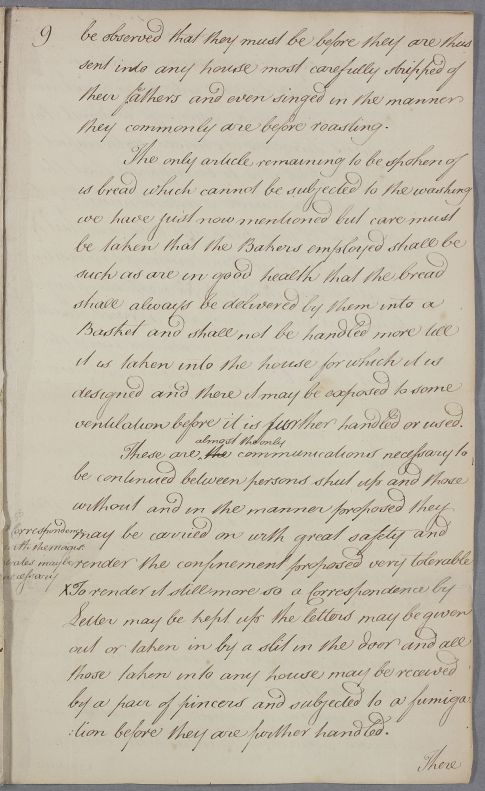 9
be observed that they must be before they are thus
sent into any house most carefully stripped of
their fathers and even singed in the manner
they commonly are before roasting.
The only article remaining to be spoken of
is bread which cannot be subjected to the washing
we have just now mentioned but care must
be taken that the Bakers employed shall be
such as are in good health that the bread
shall always be delivered by them into a
Basket and shall not be handled more till
it is taken into the house for which it is
designed and there it may be exposed to some
ventilation before it is further handled or used.
almost the only
These are the communications necessary to
be continued between persons shut up and those
without and in the manner proposed they
may be carried on with great safety and
render the confinement proposed very tolerable
x To render it still more so a Correspondence by
Letter may be kept up the letters may be given
out or taken in by a slit in the door and all
those taken into any house may be received
by a pair of pincers and subjected to a fumiga
:tion before they are further handled.
There
Correspondence
with the magis:
trates may be
necessary